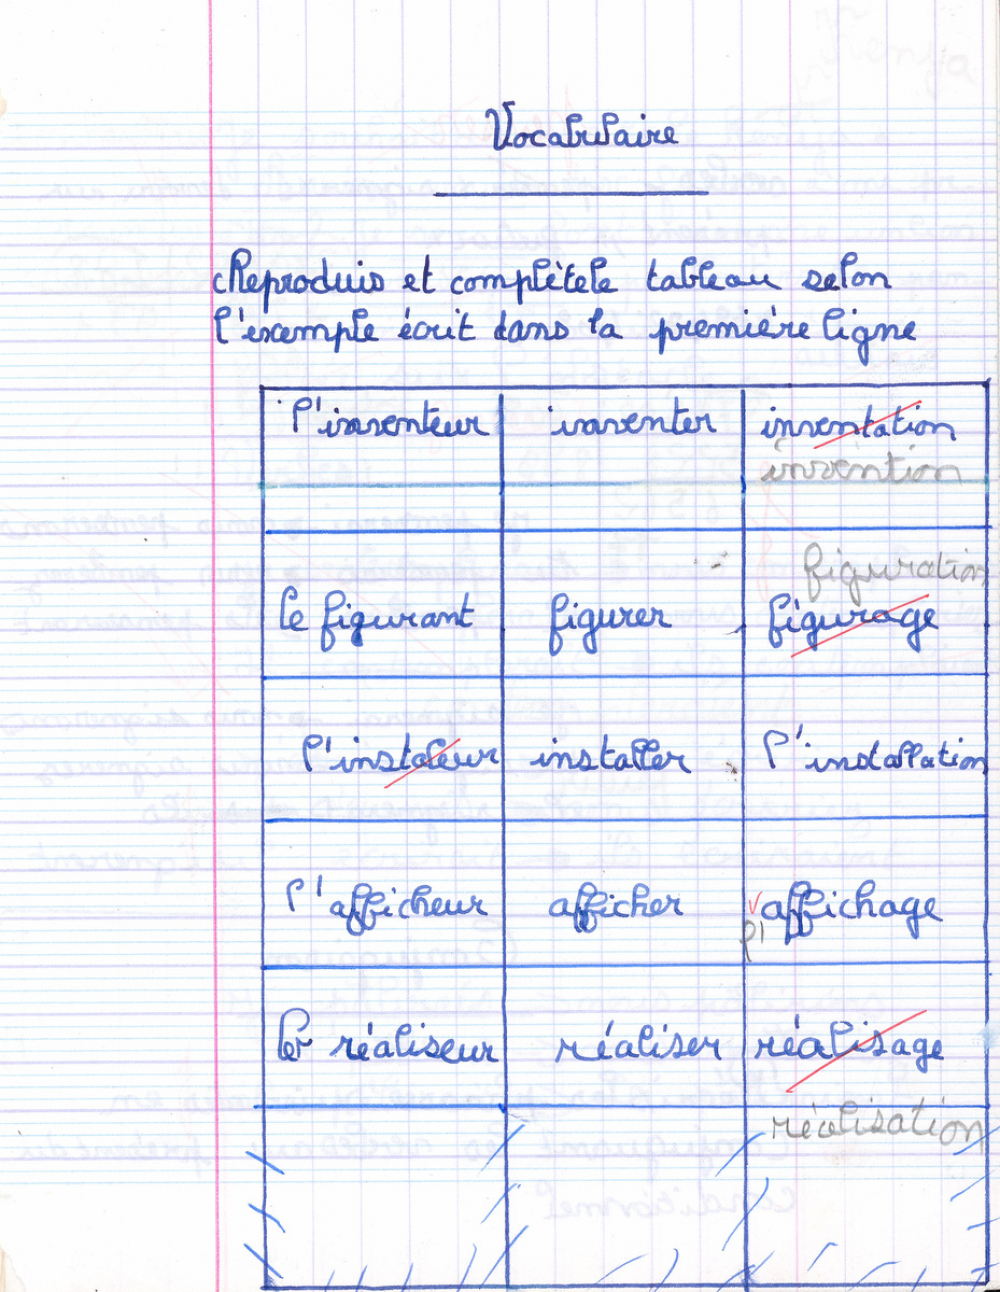 Vocabulaire
Reproduis et complète le tableau selon
l'exemple écrit dans la première ligne
l'inventeur inventer inventation
invention
figuration
le figurant figurer figurage
l'instaleur installer l'installation
l'afficheur afficher affichage
l'
le réaliseur réaliser réalisage
réalisation